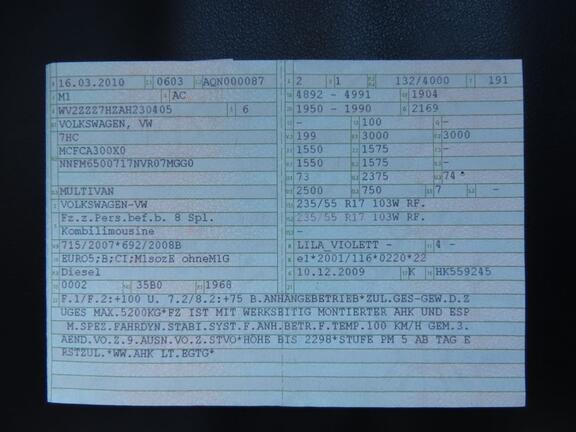 16.03.2010 0603 AQN000087 2 1 132/4000 191
M1 AC 4892 - 4991 1904
WV2ZZZ7HZAH230405 6 1950 - 1990 2169
VOLKSWAGEN, VW - 100 -
7HC 199 3000 3000
MCFCA300X0 1550 1575 -
NNFM6500717NVR07MGG0 1550 1575 -
73 2375 74
MULTIVAN 2500 750 7 -
VOLKSWAGEN-VW 235/55 R17 103W RF.
Fz.z.Pers.bef.b. 8 Spl. 235/55 R17 103W RF.
Kombilimousine -
715/2007*692/2008B LILA_VIOLETT - 4 -
EURO5;B;CI;M1sozE ohneM1G e1*2001/116*0220*22
Diesel 10.12.2009 K HK559245
0002 35B0 1968
F.1/F.2:+100 U. 7.2/8.2:+75 B.ANHÄNGEBETRIEB*ZUL.GES-GEW.D.Z
UGES MAX.5200KG*FZ IST MIT WERKSEITIG MONTIERTER AHK UND ESP
M.SPEZ.FAHRDYN.STABI.SYST.F.ANH.BETR.F.TEMP.100 KM/H GEM.3.
AEND.VO.Z.9.AUSN.VO.Z.STVO*HÖHE BIS 2298*STUFE PM 5 AB TAG E
RSTZUL.*WW.AHK LT.EGTG*